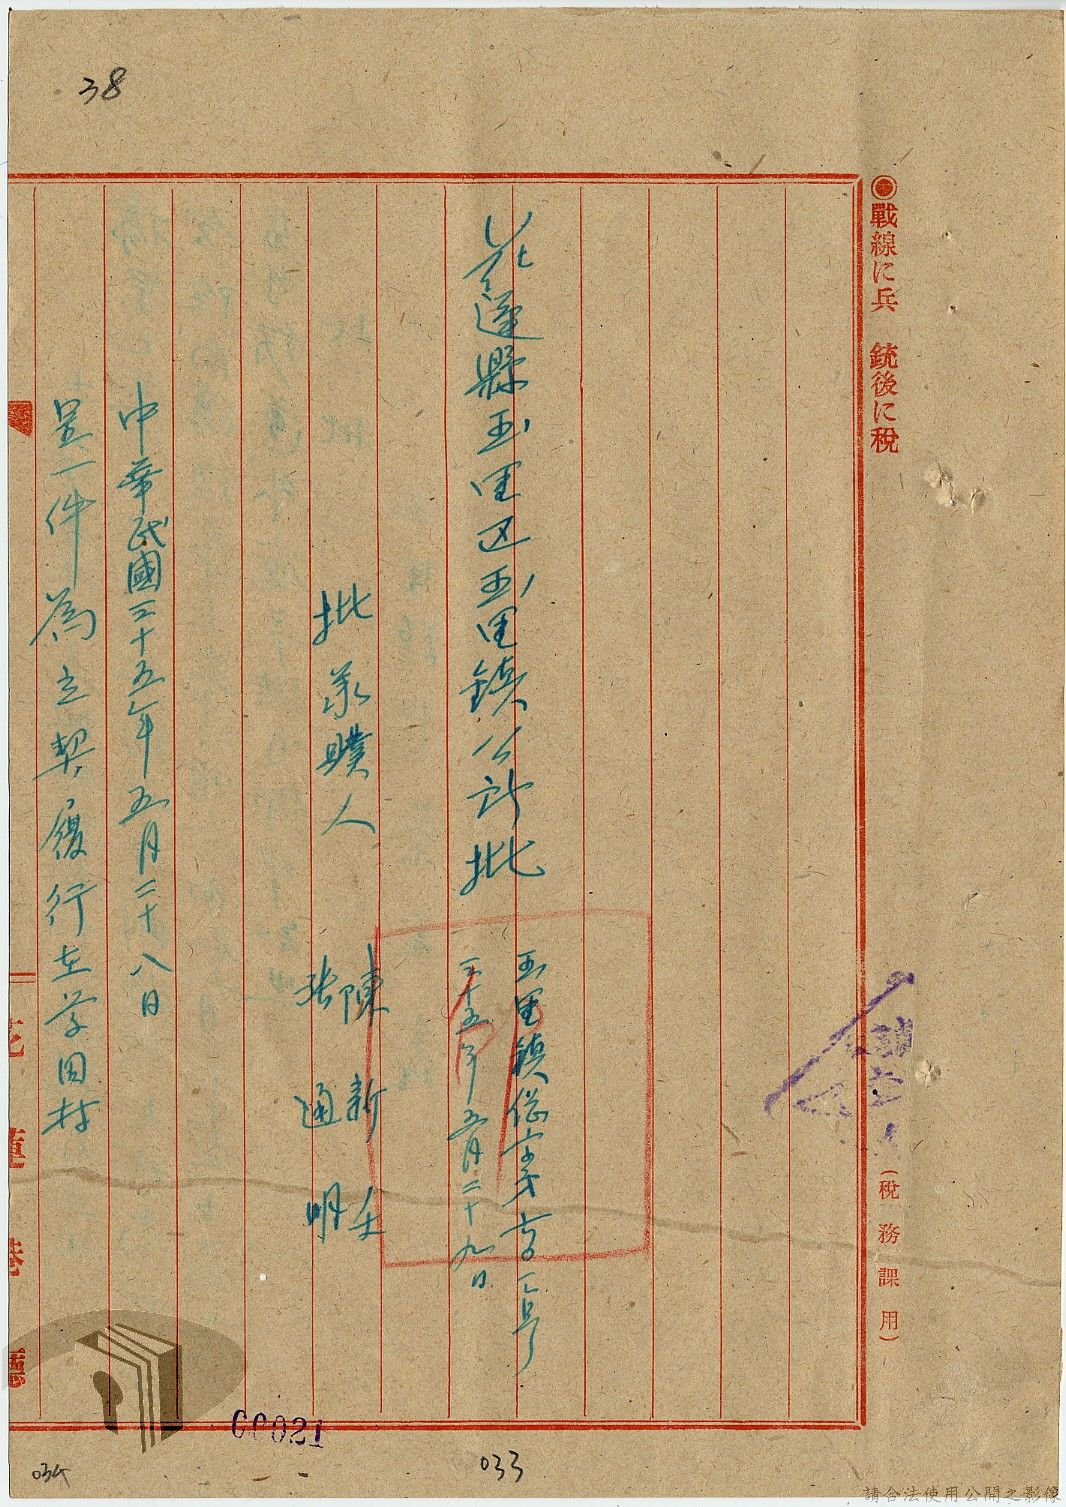 38
戰線に兵 銃後に稅
(稅務課用)
花蓮縣玉里区玉里鎮公所批
玉里鎮総字第 号
三十五年五月二十九日
批承購人
陳新壬
張通明
中華民國三十五年五月二十八日
呈一件為立契履行在学田村
花蓮港廳
00021
033
034
請合法使用公開之影像